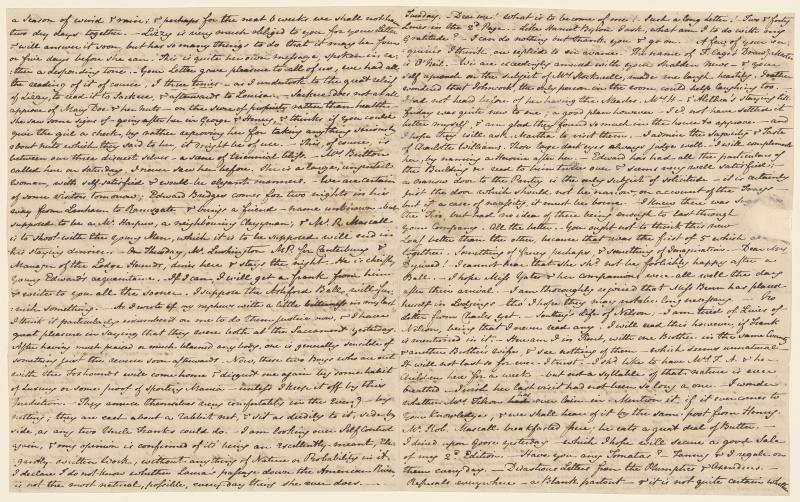 a Season of wind & rain; & perhaps for the next 6 weeks we shall not have
two dry days together. — Lizzy is very much obliged to you for your Letter
& will answer it soon, but has so many things to do that it may be four
or five days before she can. This is quite her own message, spoken in ra-
-ther a desponding tone. — Your Letter gave pleasure to all of us, we had all
the reading of it of course, I three times — as I undertook to the great relief
of Lizzy, to read it to Sackree, & afterwards to Louisa. — Sackree does not at all
approve of Mary Doe & her nuts — on the score of propriety rather than health. —
She saw some signs of going after her in George & Henry, & thinks if you could
give the girl a check, by rather reproving her for taking anything seriously
about nuts which they said to her, it might be of use. — This, of course, is
between our three discreet selves — a scene of triennial bliss. — Mrs Britton
called here on Saturday. I never saw her before. She is a large, ungenteel
Woman, with self-satisfied & would-be elegant manners. — We are certain
of some Visitors tomorrow; Edward Bridges comes for two nights in his
way from Lenham to Ramsgate & brings a friend — name unknown — but
supposed to be a Mr Harpur, a neighbouring Clergyman; & Mr R. Mascall
is to shoot with the young Men, which it is to be supposed will end in
his staying dinner. — On Thursday, Mr Lushington MP. for Canterbury &
Manager of the Lodge Hounds, dines here, & stays the night. He is chiefly
young Edward's acquaintance. — If I can, I will get a frank from him
& write to you all the sooner. I suppose the Ashford Ball, will fur-
-nish something. — As I wrote of my nephews with a little bitterness in my last,
I think it particularly incumbent on me to do them justice now, & I have
great pleasure in saying that they were both at the Sacrament yesterday.
After having much praised or much blamed any body, one is generally sensible of
something just the reverse soon afterwards. Now, these two Boys who are out
with the Foxhounds will come home & disgust me again by some habit
of Luxury or some proof of sporting Mania — unless I keep it off by this
prediction. — They amuse themselves very comfortably in the Eveng — by
netting; they are each about a rabbit net, & sit as deedily to it, side by
side, as any two Uncle Franks could do. — I am looking over Self Control
again, & my opinion is confirmed of its' being an excellently-meant, ele-
-gantly-written Work, without anything of Nature or Probability in it.
I declare I do not know whether Laura's passage down the American River,
is not the most natural, possible, every-day thing she ever does. —
Tuesday. — Dear me! what is to become of me! Such a long Letter! — Two & forty
Lines in the 2d Page. — Like Harriot Byron I ask, what am I to do with my
gratitude? — I can do nothing but thank you & go on. — A few of your en-
-quiries I think, are replied to en avance. The name of F. Cage's Drawg Master
is O'Neil. — We are exceedingly amused with your Shalden news — & your
self reproach on the subject of Mrs Stockwell, made me laugh heartily. I rather
wondered that Johncock, the only person in the room, could help laughing too. —
I had not heard before of her having the Measles. Mrs H. & Alethea's staying till
friday was quite new to me; a good plan however — I cd not have settled it
better myself, & am glad they found so much in the house to approve — and
I hope they will ask Martha to visit them. — I admire the Sagacity & Taste
of Charlotte Williams. Those large dark eyes always judge well. — I will compliment
her, by naming a Heroine after her. — Edward has had all the particulars of
the Building &c read to him twice over & seems very well satisfied; —
a narrow door to the Pantry is the only subject of solicitude — it is certainly
just the door which should not be narrow, on account of the Trays —
but if a case of necessity, it must be borne. — I knew there was
one Tin, but had no idea of there being enough to last through
your Company. All the better. — You ought not to think this new
Loaf better than the other, because that was the first of 5 which all
together. Something of fancy perhaps, & something of Imagination. — Dear Mrs
Digweed! — I cannot bear that she shd not be foolishly happy after a
Ball. — I hope Miss Yates & her companions were all well the day
after their arrival. — I am thoroughly rejoiced that Miss Benn has placed
herself in Lodgings — tho' I hope they may not be long necessary. — No
letter from Charles yet. — Southey's Life of Nelson; — I am tired of Lives of
Nelson, being that I never read any. I will read this however, if Frank
is mentioned in it. — Here am I in Kent, with one Brother in the same County
& another Brother's Wife, & see nothing of them — which seems unnatural —
It will not last so for ever I trust. — I shd like to have Mrs F. A. & her
Children here for a week — but not a syllable of that nature is ever
breathed. — I wish her last visit had not been so long a one. — I wonder
whether Mrs Tilson has ever lain in. Mention it, if it ever comes to
your knowledge, & we shall hear of it by the same post from Henry.
Mr Rob. Mascall breakfasted here; he eats a great deal of Butter. —
I dined upon Goose yesterday — which I hope will secure a good Sale
of my 2d Edition. — Have you any Tomatas? — Fanny & I regale on
them every day. — Disastrous Letters from the Plumptres & Oxendens. —
Refusals everywhere — a Blank partout — & it is not quite certain whether